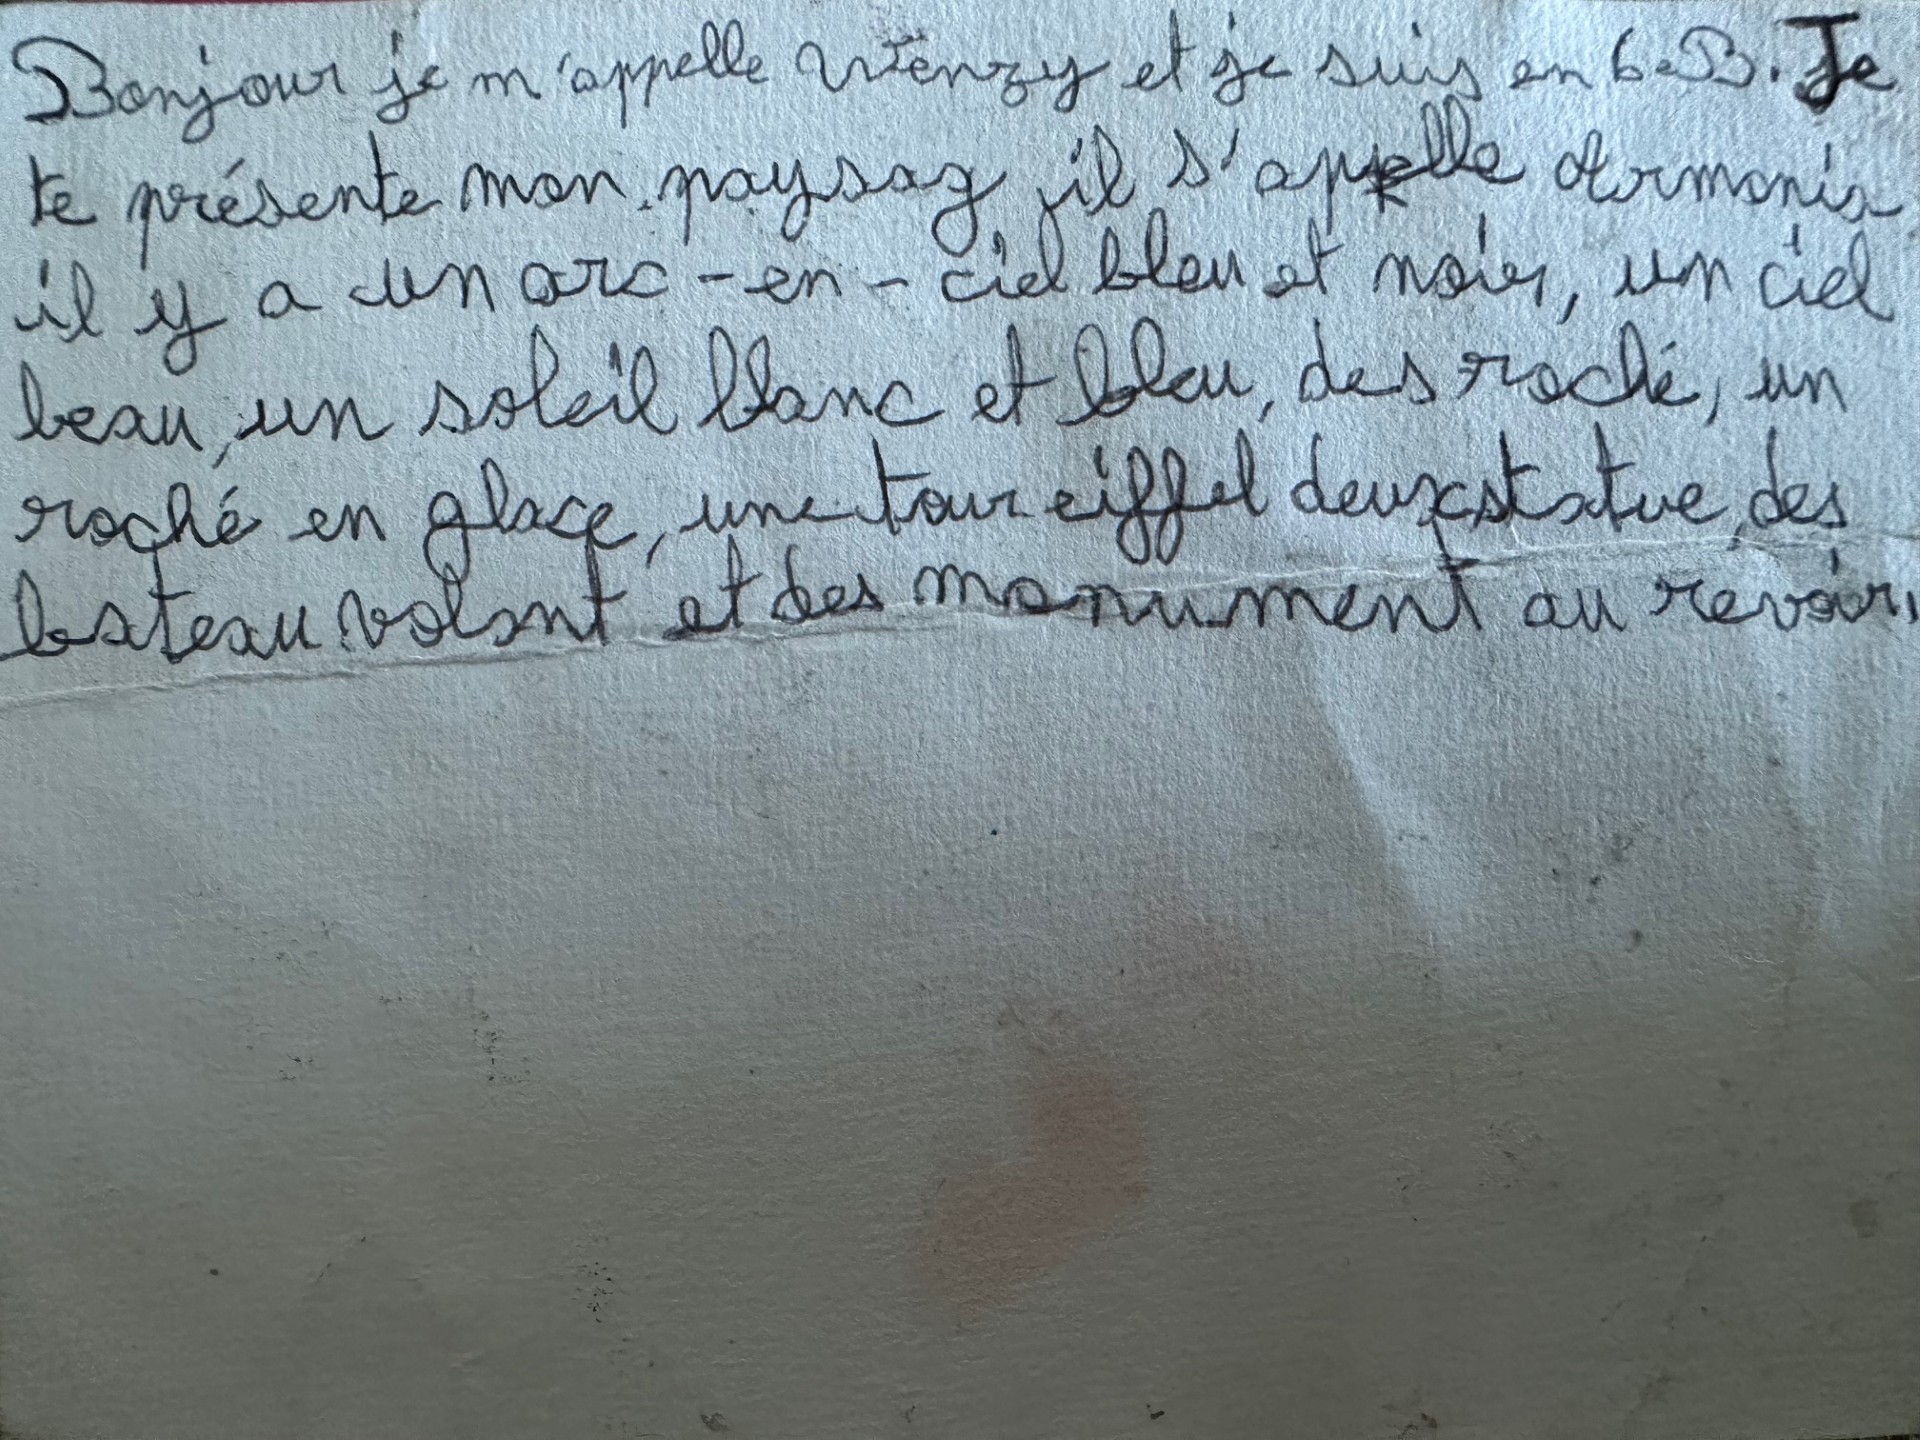 Bonjour je m'appelle Wenzy et je suis en 6.B. Je
te présente mon paysag il s'appelle Armonia
il y a un arc-en-ciel bleu et noir, un ciel
beau, un soleil blanc et bleu, des roché, un
roché en glace, une tour eiffel deux statue, des
bateau volant et des monument au revoir.